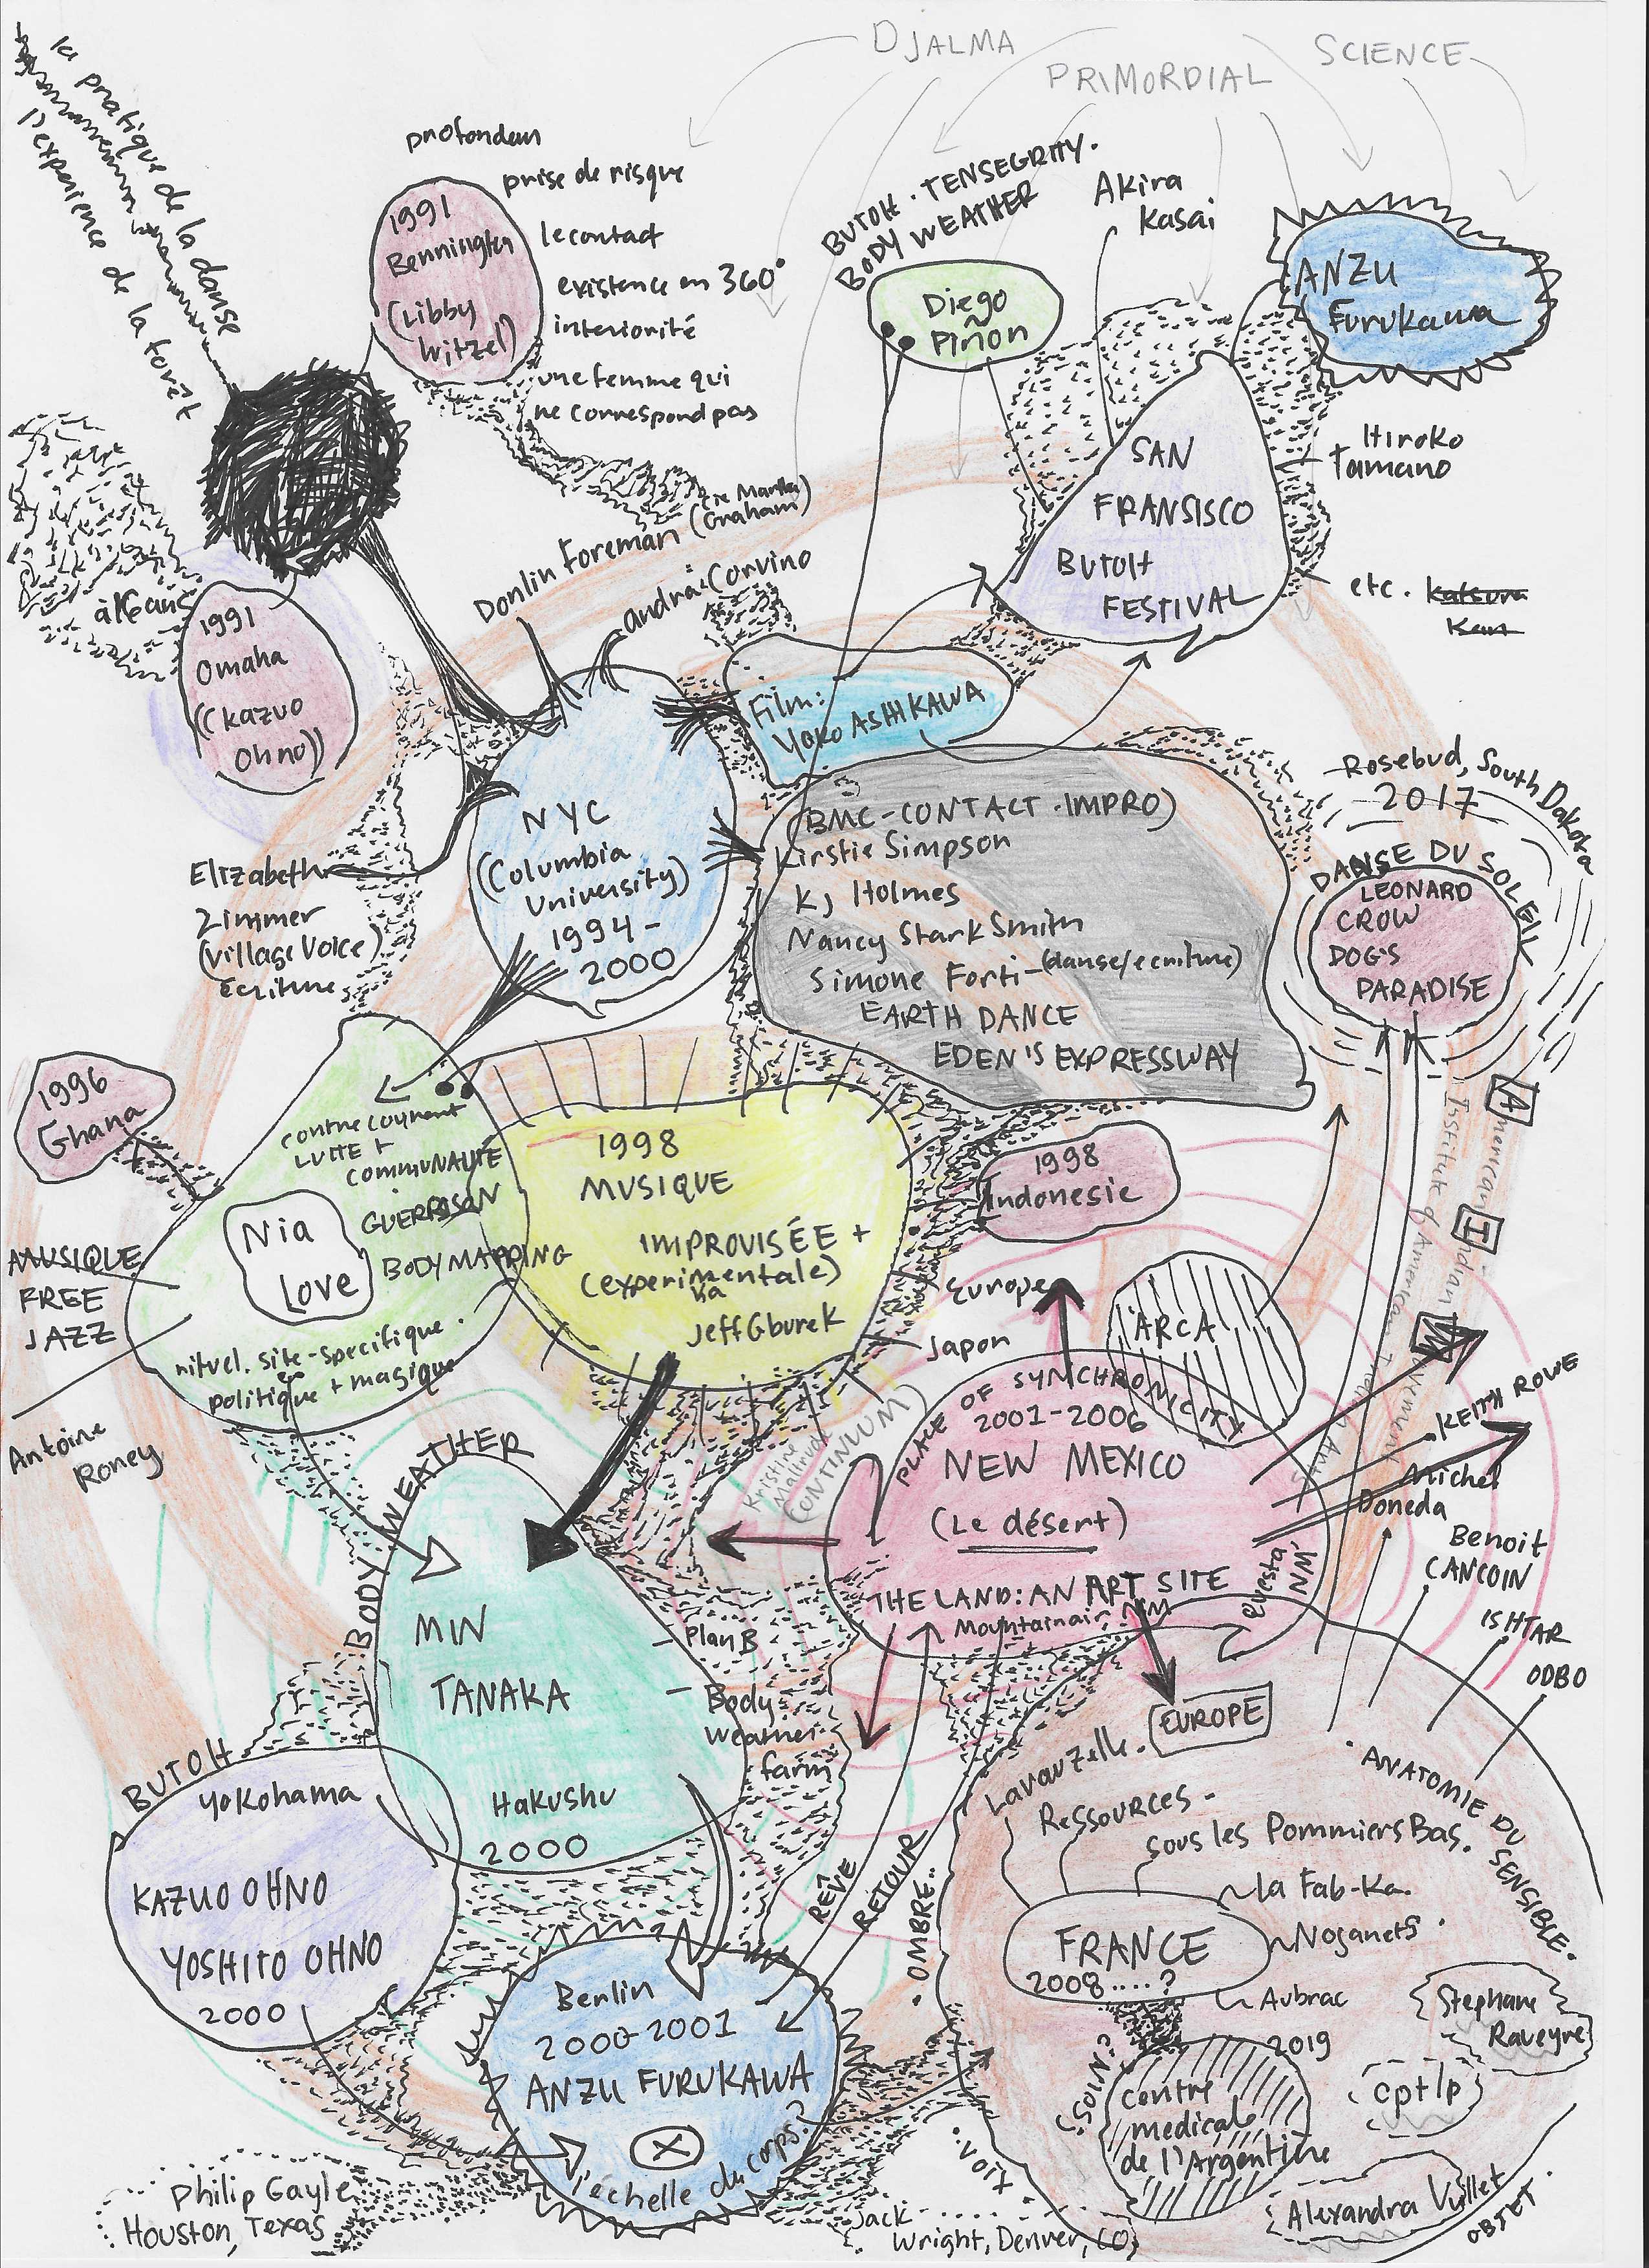 DJALMA
PRIMORDIAL
SCIENCE
la pratique de la danse
l'experience de la forêt
profondeur
prise de risque
le contact
existence en 360°
interiorité
une femme qui
ne correspond pas
1991
Bennington
(Libby
BUTOH. TENSEGRITY.
BODY WEATHER
Diego
Piñon
Akira
Kasai
ANZU
Furukawa
SAN
FRANSISCO
BUTOH
FESTIVAL
Hiroko
Tamano
etc. Katsura
Kan
à 16 ans
1991
Omaha
((Kazuo
Ohno))
Donlin Foreman (cie Martha
Graham)
andrá Corvino
Film:
Yoko ASHIKAWA
NYC
(Columbia
University)
1994-
2000
Elizabeth
Zimmer
(Village Voice)
Écriture
(BMC-CONTACT.IMPRO)
Kirstie Simpson
KJ Holmes
Nancy Stark Smith
Simone Forti-(danse/ecriture)
EARTH DANCE
EDEN'S EXPRESSWAY
Rosebud, South Dakota
2017
DANSE DU SOLEIL
LEONARD
CROW
DOG'S
PARADISE
American Indian Movement
Institute of American Indian Arts
1996
Ghana
contre courrent
LUTTE +
COMMUNAUTÉ
GUERRISON
BODY MAPPING
Nia
Love
rituel. site-specifique.
politique + magique
MUSIQUE
FREE
JAZZ
Antoine
Roney
1998
MUSIQUE
IMPROVISÉE +
(experimentale)
Jeff Gburek
1998
Indonesie
Europe
Japon
ARCA
PLACE OF SYNCHRONICITY
2001-2006
NEW MEXICO
(Le désert)
THE LAND: AN ART SITE
Mountainair, NM
Questa, NM
(CONTINUUM)
KEITH ROWE
Michel
Doneda
Benoit
CANCOIN
ISHTAR
ODBO
BODY WEATHER
MIN
TANAKA
Hakushu
2000
- Plan B
- Body
Weather
farm
BUTOH
Yokohama
KAZUO OHNO
YOSHITO OHNO
2000
RÊVE
RETOUR
. OMBRE..
Berlin
2000-2001
ANZU FURUKAWA
X
l'échelle du corps?
EUROPE
Lavauzelle.
Ressources.
sous les Pommiers Bas.
la Fab-Ka.
Noganets.
Aubrac
FRANCE
2008....?
. ANATOMIE DU SENSIBLE.
Stephane
Raveyre
cptlp
2019
(SOIN?)
contre
medicale
de l'Argentière
Alexandra Vuillet
OBJET.
. VOIX
Philip Gayle
Houston, Texas
Jack
Wright, Denver, CO